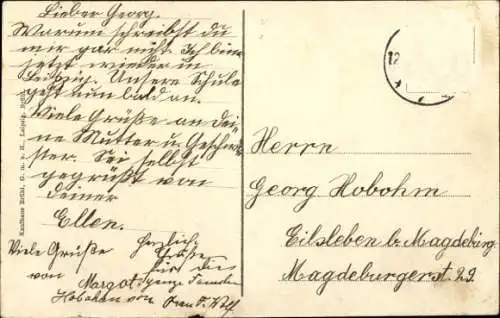 Lieber Georg.
Warum schreibst du
mir gar nicht. Ich bin
jetzt wieder in
Leipzig. Unsere Schule
geht nun bald an.
Viele Grüße an dei=
ne Mutter u. Geschwi=
ster. Sei selbst
gegrüßt von
deiner
Ellen.
Viele Grüße
von Margot
Herzliche
Grüße
für die
ganze Familie
Hobohm von Frau
Kaufhaus Brühl, G. m. b. H., Leipzig, Brühl
12
Herrn
Georg Hobohm
Eilsleben b. Magdeburg
Magdeburgerst. 29.